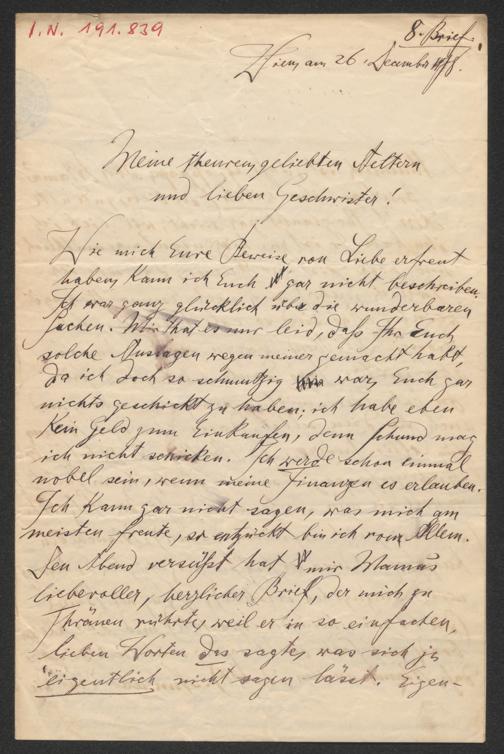 I.N. 191.839
8. Brief.
Wien, am 26. December
Meine theuren, geliebten Aeltern
und lieben Geschwister!
Wie mich Eure Beweise von Liebe erfreut
haben, kann ich Euch gar nicht beschreiben.
Ich war ganz glücklich über die wunderbaren
Sachen. Mir that es nur leid, daß Ihr Euch
solche Auslagen wegen meiner gemacht habt,
da ich doch so schmutzig war, Euch gar
nichts geschickt zu haben; ich habe eben
kein Geld zum Einkaufen, denn Schund mag
ich nicht schicken. Ich werde schon einmal
nobel sein, wenn meine Finanzen es erlauben.
Ich kann gar nicht sagen, was mich am
meisten freute, so entzückt bin ich von Allem.
Den Abend versüßt hat mir Mamas
liebevoller, herzlicher Brief, der mich zu
Thränen rührte, weil er in so einfachen,
lieben Worten das sagte, was sich ja
eigentlich nicht sagen lässt. Eigen-